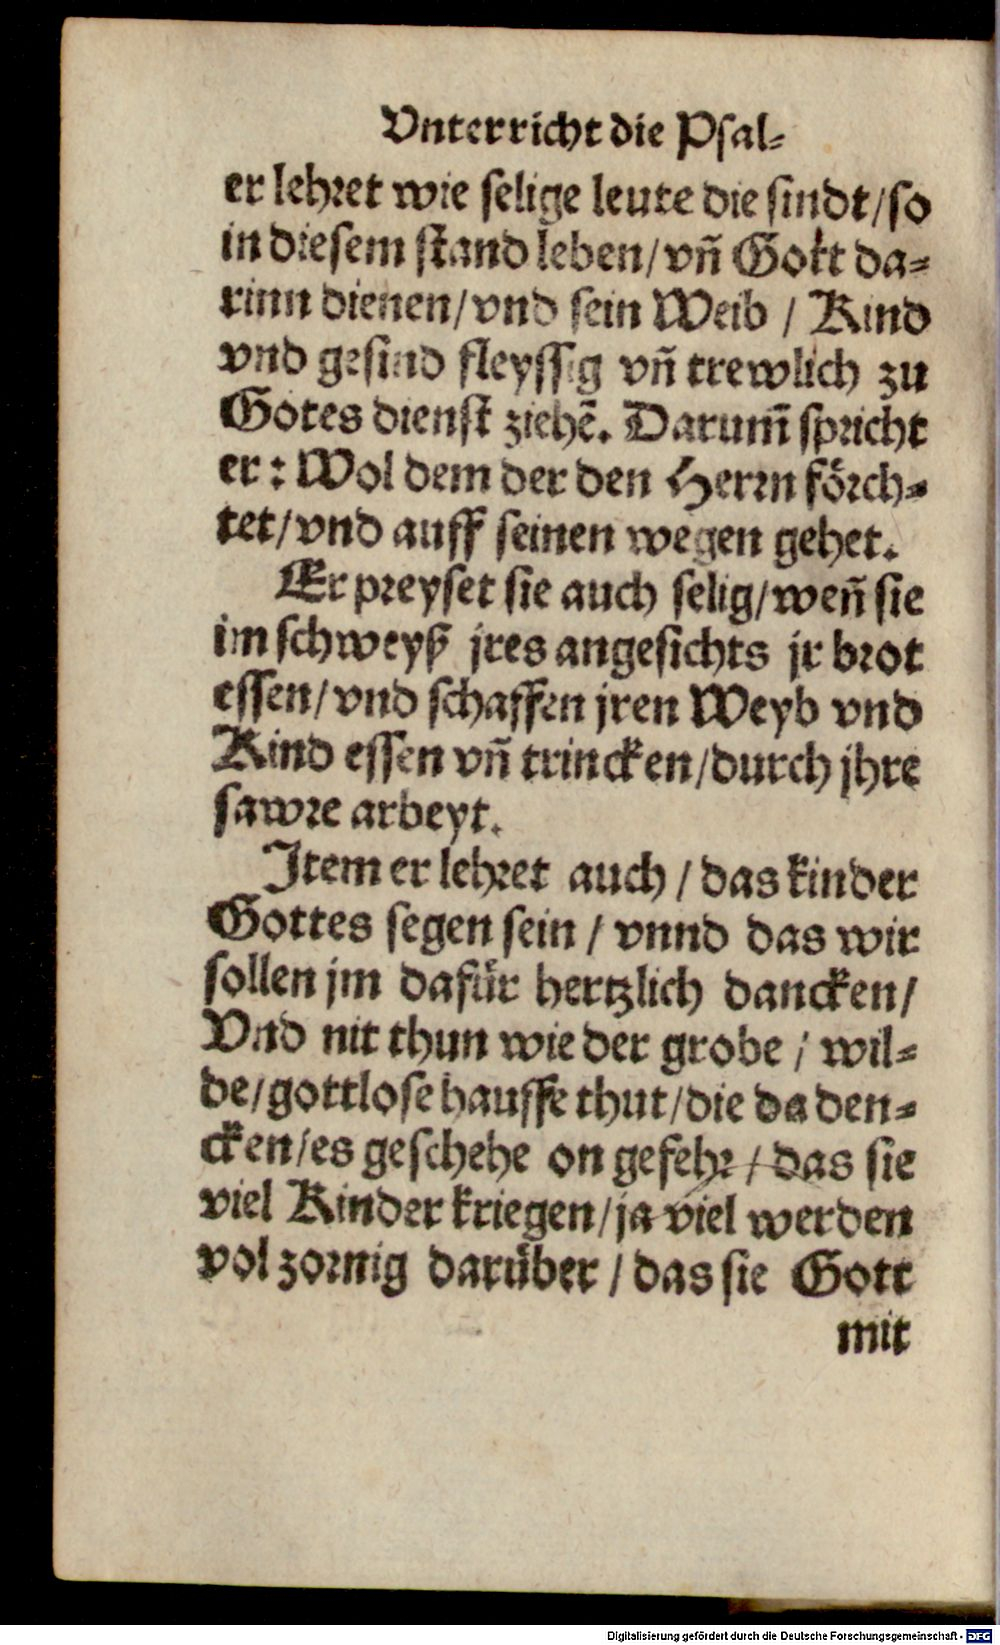 Vnterricht die Psal-
er lehret wie selige leute die sindt/so
in diesem stand leben/vñ Gott da-
rinn dienen/vnd sein Weib / Kind
vnd gesind fleyssig vñ trewlich zu
Gotes dienst ziehē. Darum̄ spricht
er: Wol dem der den Herrn förch-
tet/vnd auff seinen wegen gehet.
Er preyset sie auch selig/weñ sie
im schweyß jres angesichts jr brot
essen/vnd schaffen jren Weyb vnd
Kind essen vñ trincken/durch jhre
sawre arbeyt.
Item er lehret auch / das kinder
Gottes segen sein / vnnd das wir
sollen jm dafür hertzlich dancken/
Vnd nit thun wie der grobe / wil-
de/gottlose hauffe thut/die da den-
cken/es geschehe on gefehr / das sie
viel Kinder kriegen/ja viel werden
vol zornig darüber / das sie Gott
mit
Digitalisierung gefördert durch die Deutsche Forschungsgemeinschaft - DFG